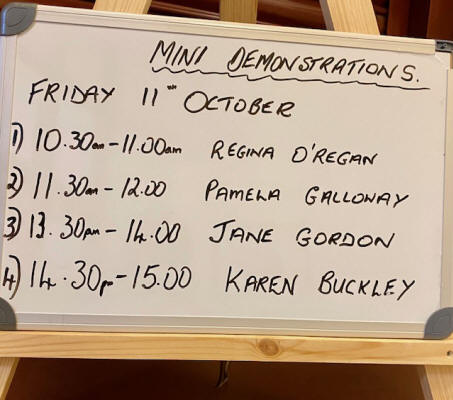 MINI DEMONSTRATIONS.
FRIDAY 11th OCTOBER
1) 10.30am - 11.00am REGINA O'REGAN
2) 11.30am - 12.00 PAMELA GALLOWAY
3) 13.30pm - 14.00 JANE GORDON
4) 14.30p - 15.00 KAREN BUCKLEY